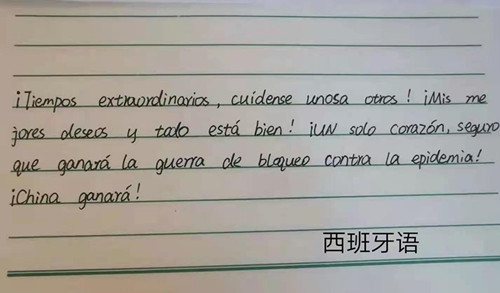 ¡Tiempos extraordinarios, cuídense unosa otros! ¡Mis me
jores deseos y todo está bien! ¡UN solo corazón, seguro
que ganará la guerra de bloqueo contra la epidemia!
¡China ganará!
西班牙语